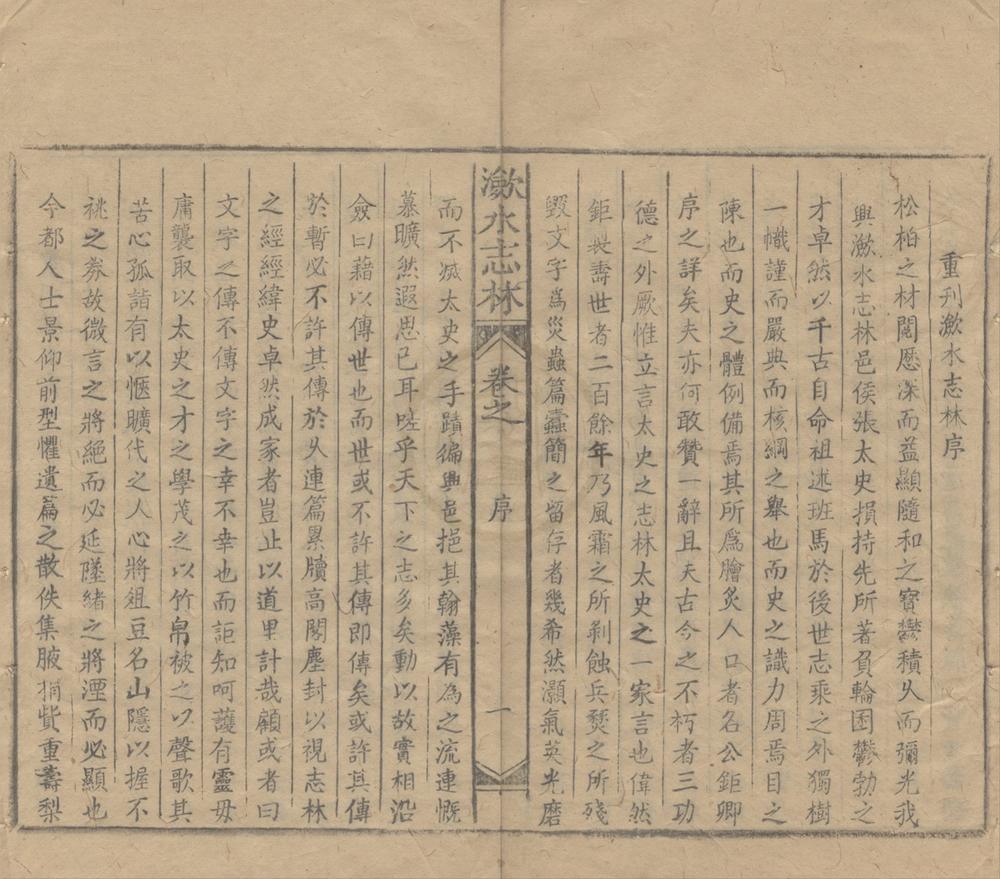 重刊漵水志林序
松柏之材閱歷深而益顯隨和之寶鬱積久而彌光我
興漵水志林邑侯張太史損持先所著負輪囷鬱勃之
才卓然以千古自命祖述班馬於後世志乘之外獨樹
一幟謹而嚴典而核綱之舉也而史之識力周焉目之
陳也而史之體例備焉其所爲膾炙人口者名公鉅卿
序之詳矣夫亦何敢贊一辭且夫古今之不朽者三功
德之外厥惟立言太史之志林太史之一家言也偉然
鉅製壽世者二百餘年乃風霜之所剝蝕兵燹之所殘
毀文字爲災蟲篇蠹簡之留存者幾希然灝氣英光磨
漵水志林 卷之 序 一
而不滅太史之手蹟徧興邑挹其翰藻有為之流連慨
慕曠然遐思已耳嗟乎天下之志多矣動以故實相沿
僉曰藉以傳世也而世或不許其傳即傳矣或許其傳
於暫必不許其傳於久連篇累牘高閣塵封以視志林
之經經緯史卓然成家者豈止以道里計哉顧或者曰
文字之傳不傳文字之幸不幸也而詎知呵護有靈毋
庸襲取以太史之才之學茂之以竹帛被之以聲歌其
苦心孤詣有以愜曠代之人心將俎豆名山隱以握不
祧之券故微言之將絕而必延墜緒之將湮而必顯也
今都人士景仰前型懼遺篇之散佚集腋捐貲重壽梨